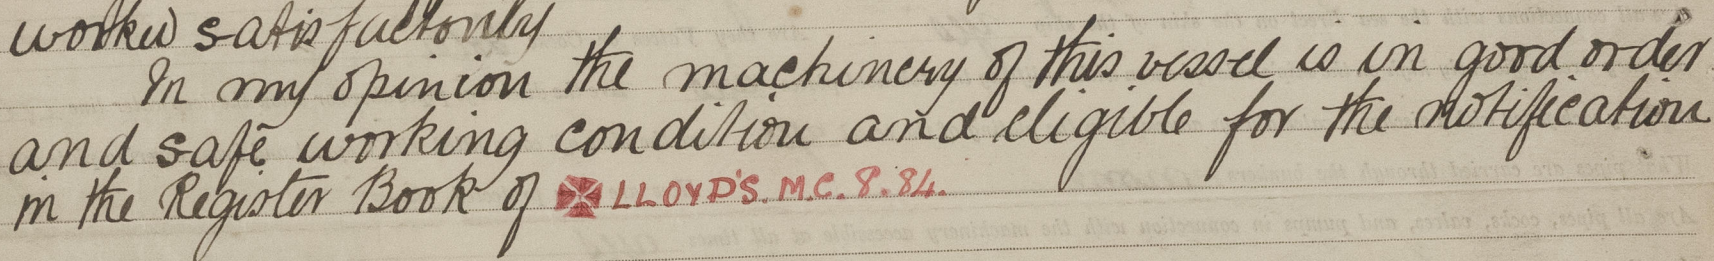 worked satisfactorily
In my opinion the machinery of this vessel is in good order
and safe working condition and eligible for the notification
in the Register Book of ✠ LLOYD'S. M.C. 8.84.